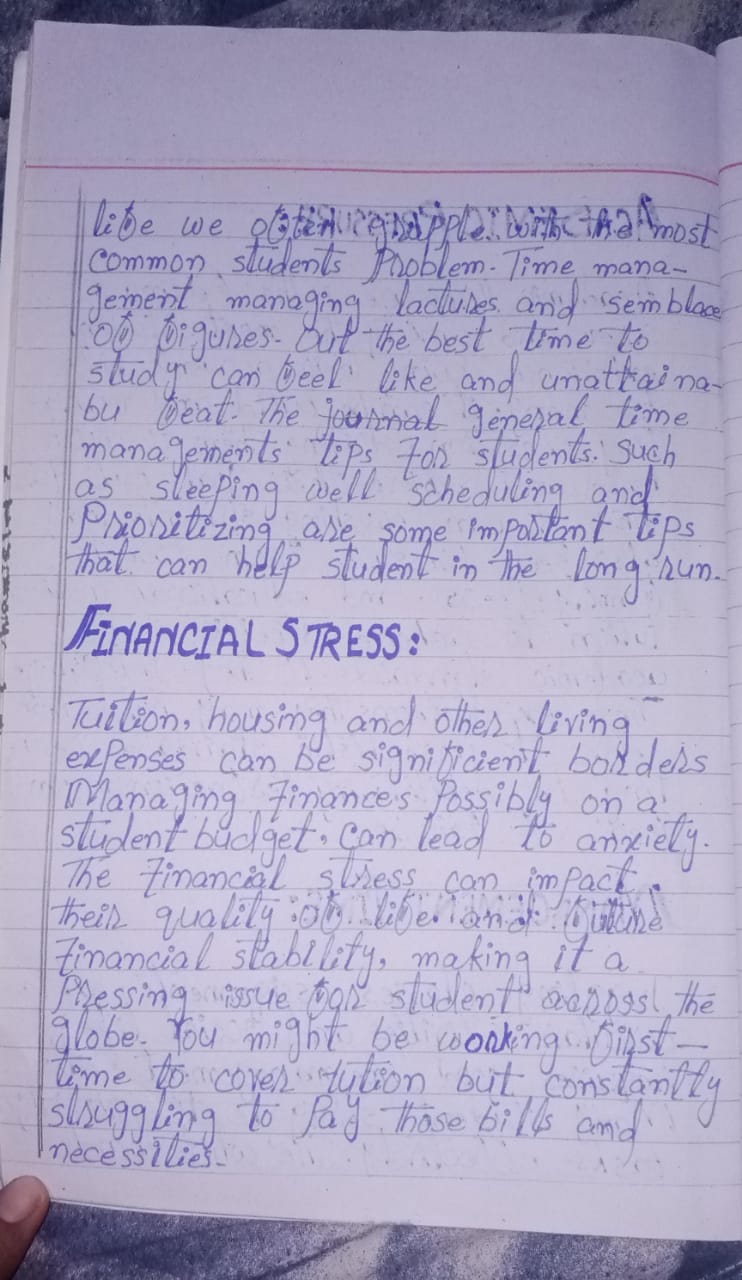 life we often grapple with the most
common students Problem. Time mana-
gement managing lactures and semblace
of figures. out the best time to
study can feel like and unattaina-
bu feat. The journal general time
managements tips For students. Such
as sleeping well scheduling and
Prioritizing are some important tips
that can help student in the long run.
FINANCIAL STRESS:
Tuition, housing and other living
expenses can be significient borders
Managing Finances Possibly on a
student budget, can lead to anxiety.
The Financial stress can impact
their quality of life and future
Financial stability, making it a
Pressing issue for student across the
globe. You might be working first-
time to cover tution but constantly
struggling to Pay those bills and
necessities.